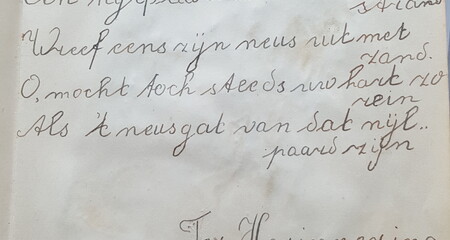 Een nijlpaard
strand
Wreef eens zijn neus uit met
zand.
O, mocht toch steeds uw hart zo
rein
Als 't neusgat van dat nijl..
paard zijn
Ter Herinnering